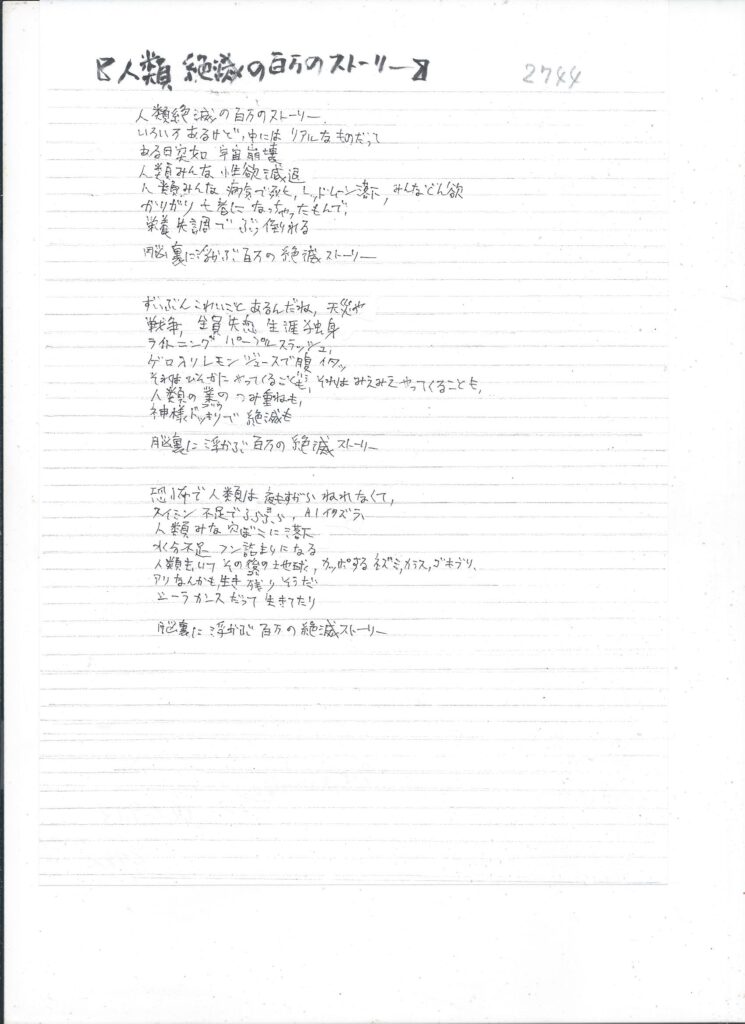 【人類絶滅の百万のストーリー】 2744
人類絶滅の百万のストーリー
いろいろあるけど、中にはリアルなものだって
ある日突如 宇宙崩壊
人類みんな 性欲減退
人類みんな 病気で死亡、レッドムーン落下、みんなどん欲
かりかり亡者になっちゃったもんで、
栄養失調で ぶっ倒れる
脳裏に浮かぶ百万の絶滅ストーリー
ずいぶんこわいこと あるんだね、天災や
戦争、全員失恋 生涯独身
ライトニング パープルスラッシュ、
ゲロ入りレモンジュースで腹イタッ
それはひそかに やってくることも、それはみえみえやってくることも、
人類の業の つみ重ねも、
神様ドッキリで 絶滅も
脳裏に浮かぶ百万の絶滅ストーリー
恐怖で人類は 夜もすがら ねれなくて、
タイミン不足で ふらふら、AIイタズラ、
人類みな穴ぼこに落下
水分不足 フン詰まりになる
人類去いて その後の地球、カッポするネズミ、カラス、ゴキブリ、
アリなんかも生き残りそうだ
シーラカンスだって 生きてたり
脳裏に浮かぶ百万の絶滅ストーリー